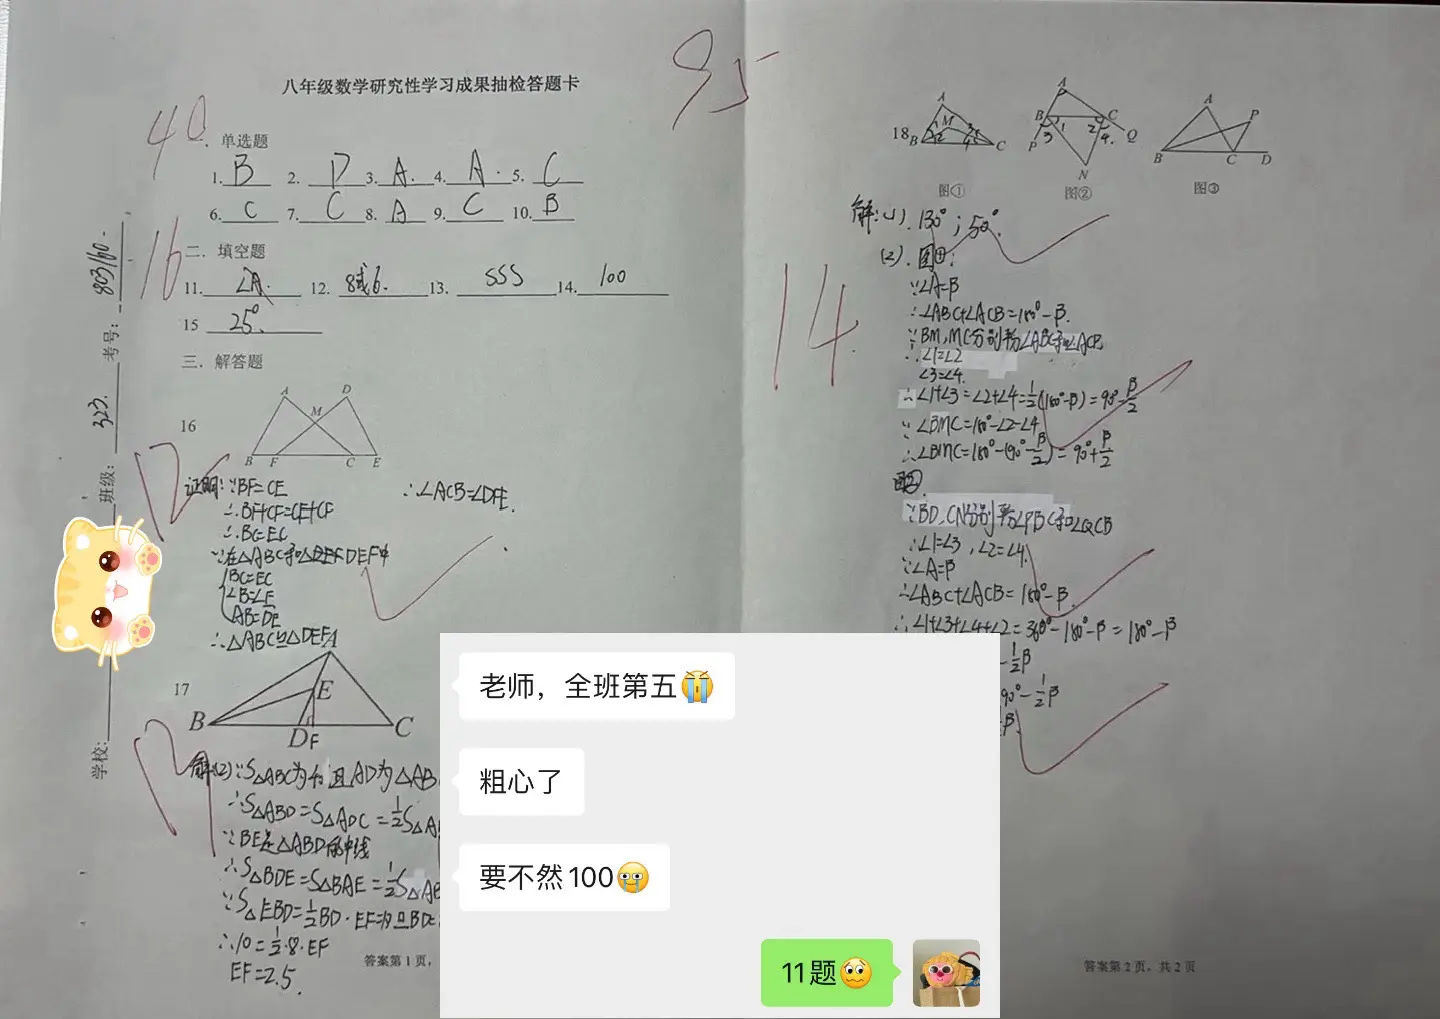 八年级数学研究性学习成果抽检答题卡
95
40
一. 单选题
1. B 2. D 3. A. 4. A. 5. C
6. C 7. C 8. A 9. C 10. B
16
二. 填空题
11. ∠A. 12. 8或6. 13. SSS 14. 100
15 25°.
三. 解答题
16
A D
M
B F C E
证明:∵BF=CE
∴BF+CF=CE+CF
∴BC=EC
∵在△ABC和△DEF中
BC=EC
∠B=∠E
AB=DE
∴△ABC≌△DEF
∴∠ACB=∠DFE.
17
A
E
B D F C
解(2)∵S△ABC为40且AD为△AB
∴S△ABD=S△ADC=1/2S△A
∵BE是△ABD的中线
∴S△BDE=S△BAE=1/2S△AB
∵S△EBD=1/2BD·EF=
∴10=1/2·8·EF
EF=2.5.
答案第1页,
学校:
班级: 323.
考号: 803160.
14
18
A
M
B C
1 2 3 4
图①
A
B C
3 1 2 4
P Q
N
图②
A P
B C D
图③
解:(1). 130°; 50°.
(2). 图①:
∵∠A=β
∴∠ABC+∠ACB=180°-β.
∵BM,MC分别平分∠ABC和∠ACB
∴∠1=∠2
∠3=∠4.
∴∠1+∠3=∠2+∠4=1/2(180°-β)=90°-β/2
∵∠BMC=180°-∠2-∠4
∴∠BMC=180°-(90°-β/2)=90°+β/2
图②.
∵BD,CN分别平分∠PBC和∠QCB
∴∠1=∠3,∠2=∠4.
∵∠A=β
∴∠ABC+∠ACB=180°-β.
∴∠1+∠3+∠4+∠2=360°-180°-β=180°-β
-1/2β
90°-1/2β
β.
答案第2页,共2页
老师，全班第五😭
粗心了
要不然100🥹
11题🥴